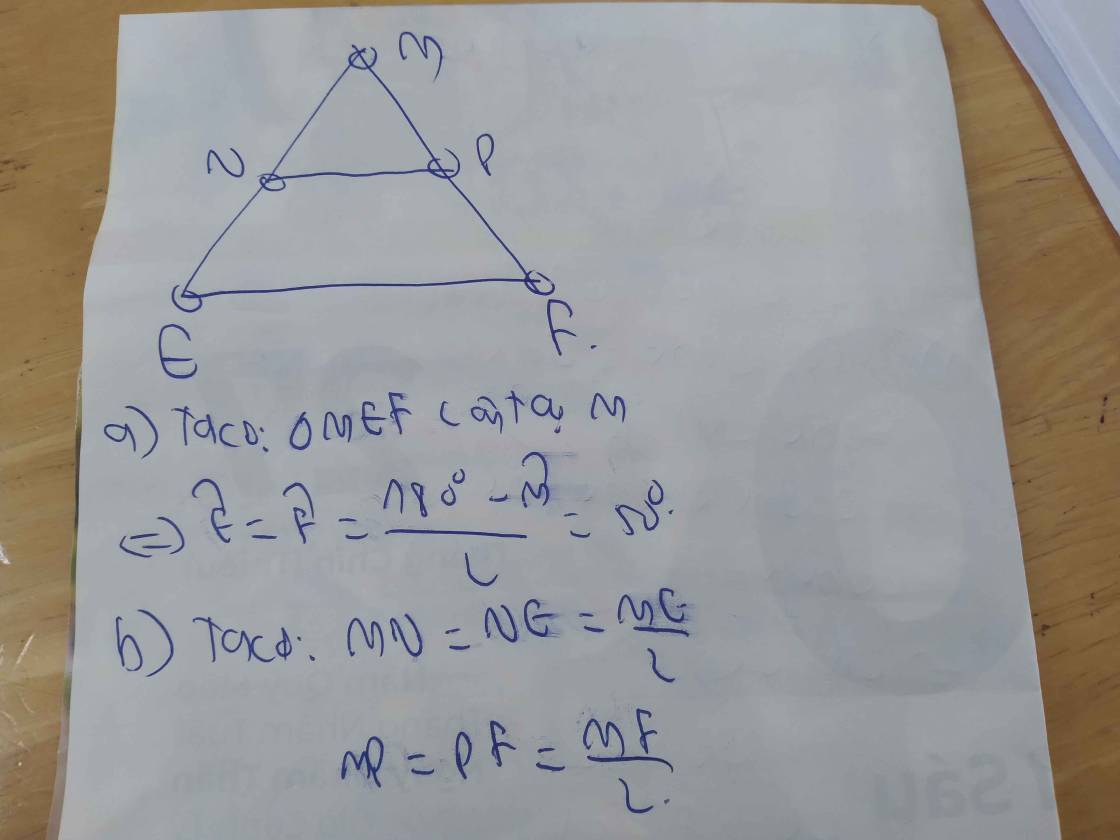 M
N P
E F.
a) Ta có: ΔMEF cân tại M
⇔ Ê = F̂ = (180° - M̂)/2 = 50°.
b) Ta có: MN = NE = ME/2
MP = PF = MF/2.
Sáu